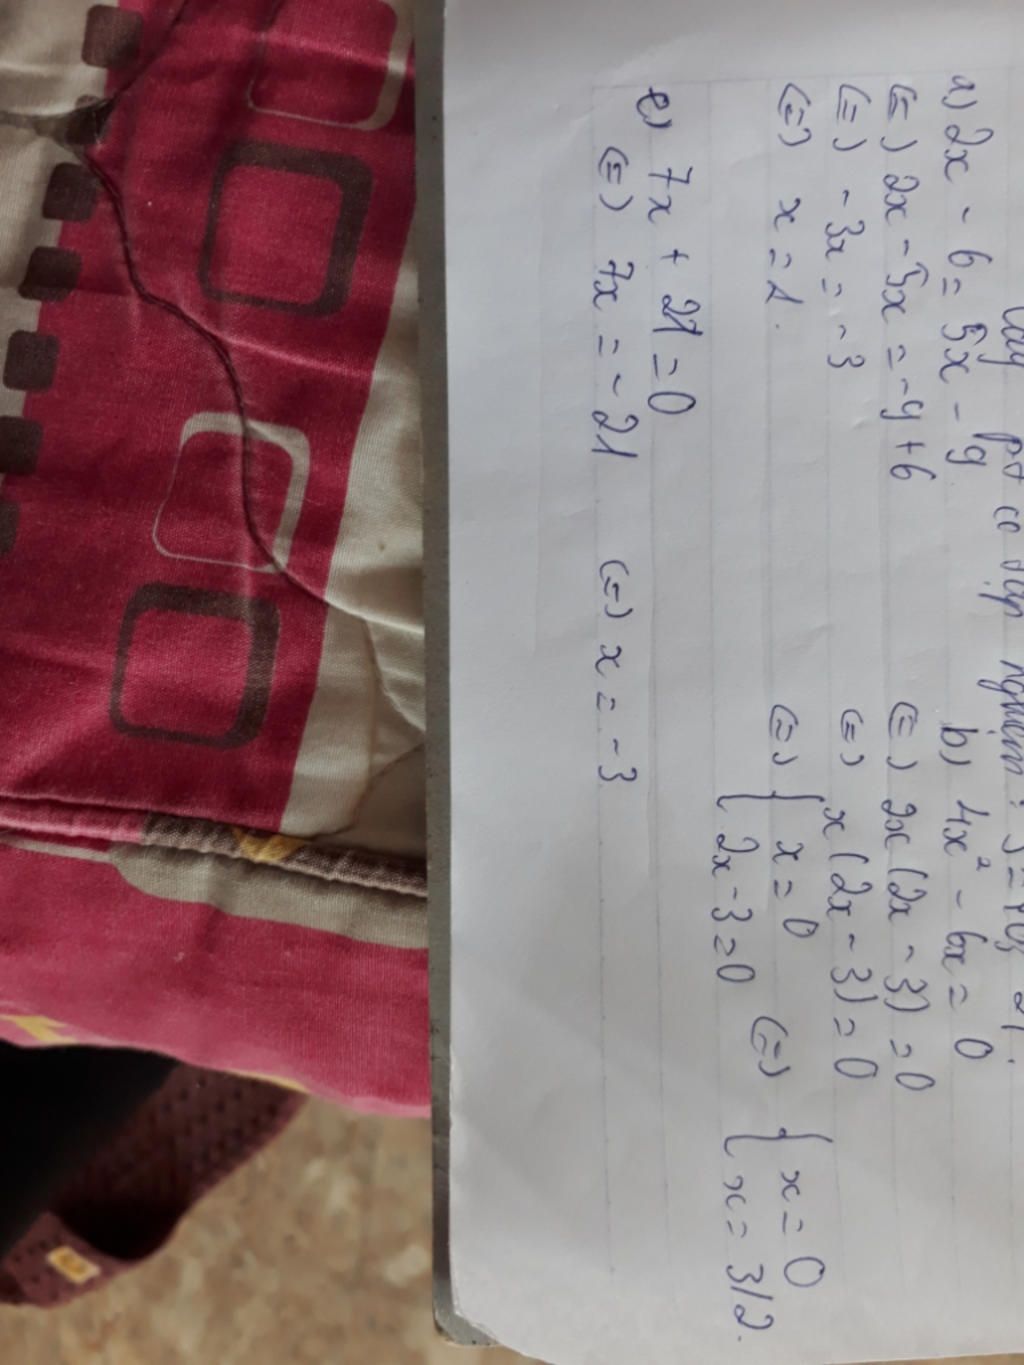 pt có tập nghiệm : S =
a) 2x - 6 = 5x - 9
(=) 2x - 5x = -9 + 6
(=) - 3x = - 3
(=) x = 1.
b) 4x² - 6x = 0
(=) 2x (2x - 3) = 0
(=) x (2x - 3) = 0
(=) { x = 0
{ 2x - 3 = 0
(=) { x = 0
{ x = 3/2.
e) 7x + 21 = 0
(=) 7x = - 21 (=) x = - 3